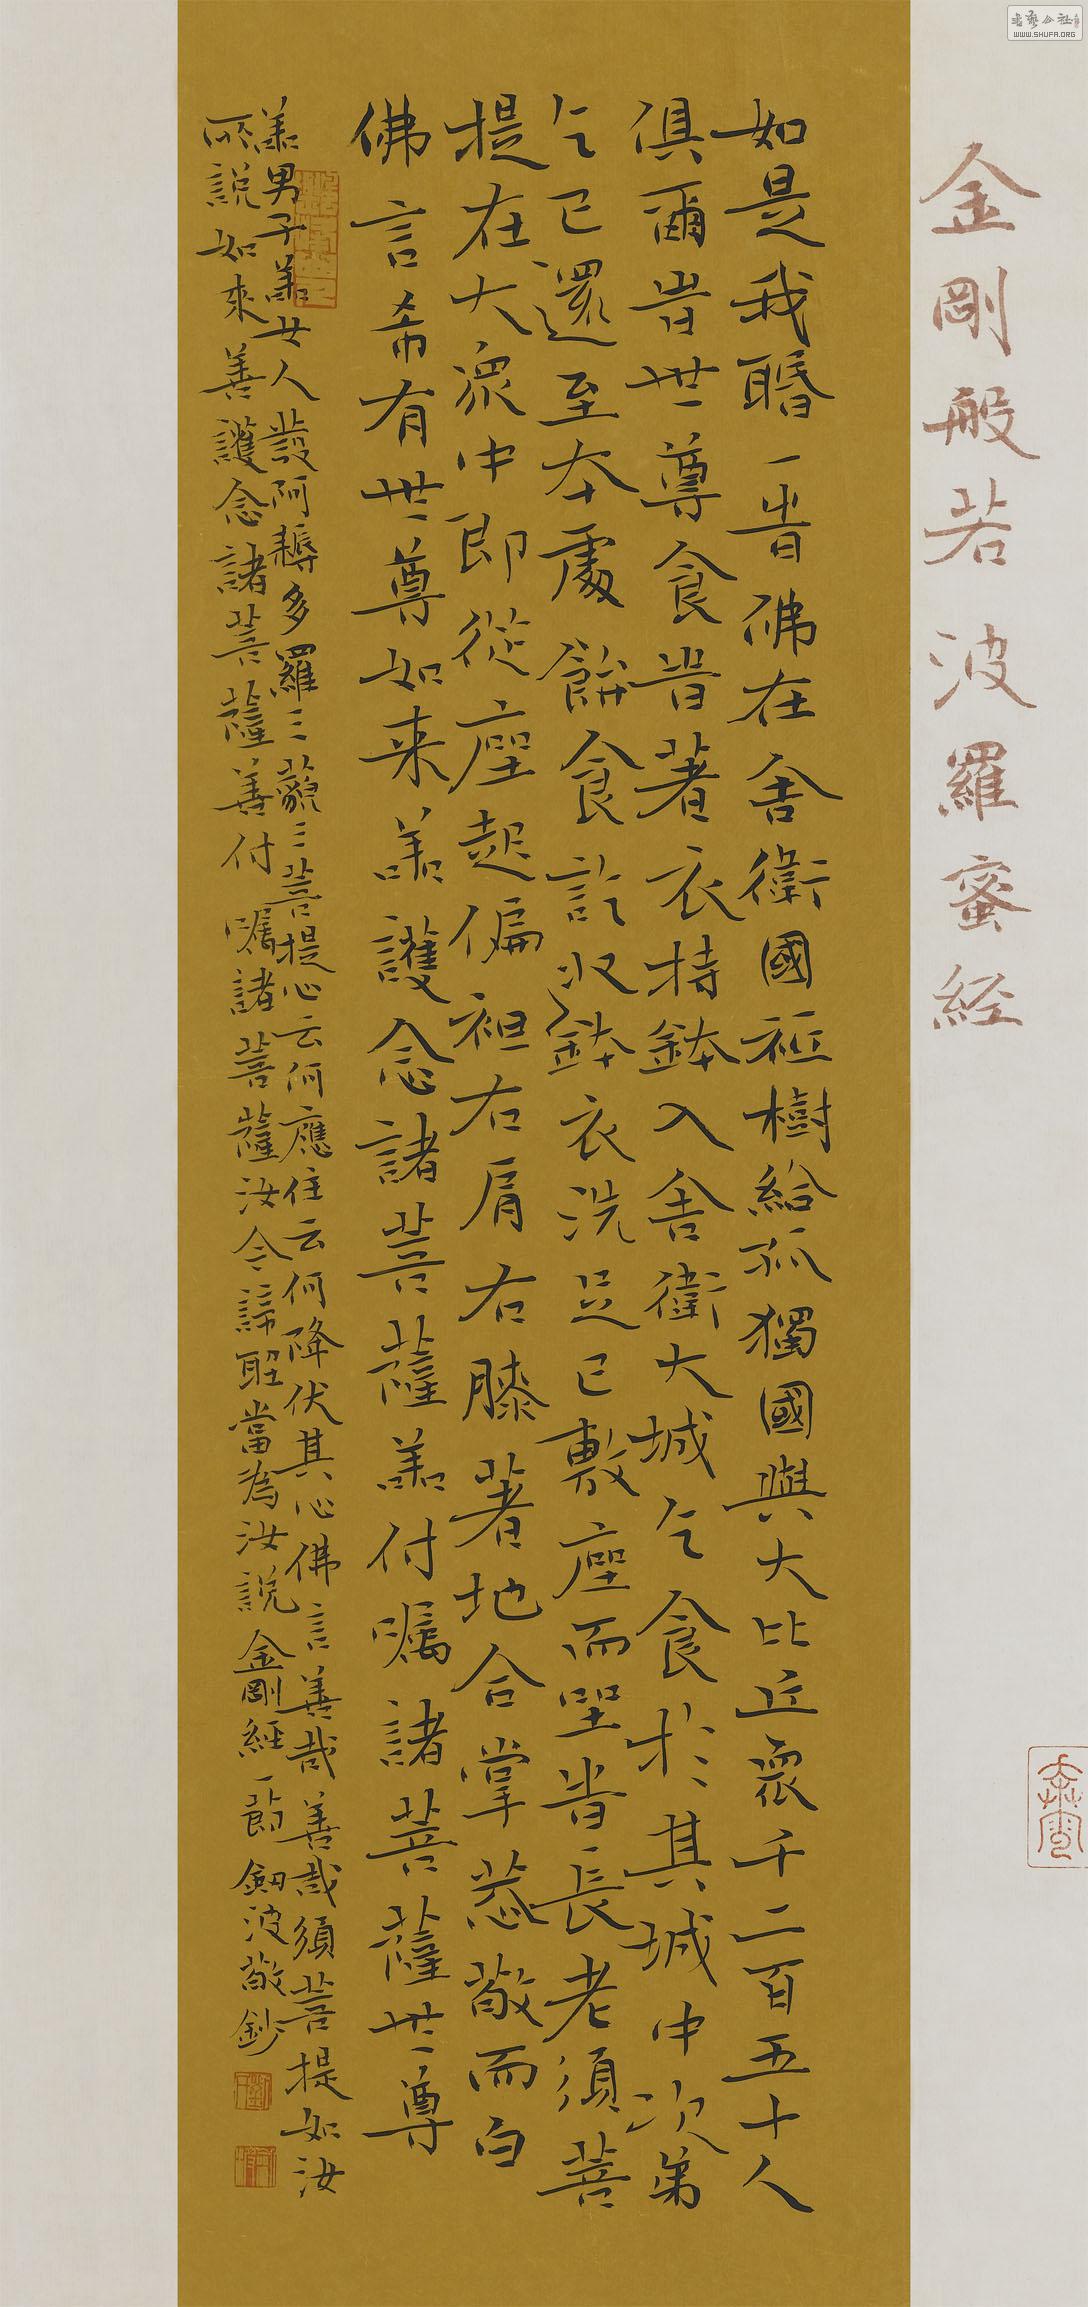 書藝公社
WWW.SHUFA.ORG
金剛般若波羅蜜経
如是我䎽一旹佛在舍衛國祇樹給孤獨國與大比丘眾千二百五十人
俱爾旹世尊食旹著衣持鉢入舍衛大城乞食於其城中次第
乞已還至本處飯食訖收鉢衣洗足已敷座而坐旹長老須菩
提在大眾中即從座起偏袒右肩右膝著地合掌恭敬而白
佛言希有世尊如来善護念諸菩薩善付囑諸菩薩世尊
善男子善女人發阿耨多羅三藐三菩提心云何應住云何降伏其心佛言善哉善哉須菩提如汝
所說如來善護念諸菩薩善付囑諸菩薩汝今諦聽當為汝說金剛經一節劍波敬鈔